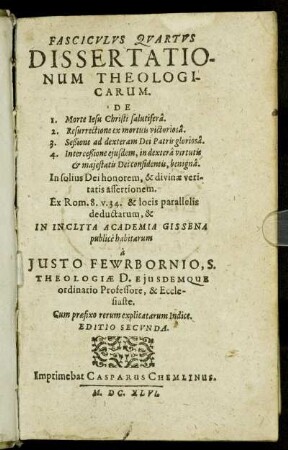 FASCICVLVS QVARTVS
DISSERTATIO-
NUM THEOLOGI-
CARUM.
DE
1. Morte Iesu Christi salutiferâ.
2. Resurrectione ex mortuis victoriosâ.
3. Sessione ad dexteram Dei Patris gloriosâ.
4. Intercessione ejusdem, in dexterâ virtutis
& majestatis Dei considentis, benignâ.
In solius Dei honorem, & divinæ veri-
tatis assertionem.
Ex Rom. 8. v. 34. & locis parallelis
deductarum, &
IN INCLYTA ACADEMIA GISSENA
publicè habitarum
à
JUSTO FEWRBORNIO, S.
THEOLOGIÆ D. EJUSDEMQUE
ordinario Professore, & Eccle-
siaste.
Cum præfixo rerum explicatarum Indice.
EDITIO SECVNDA.
Imprimebat CASPARUS CHEMLINUS.
M. DC. XLVI.